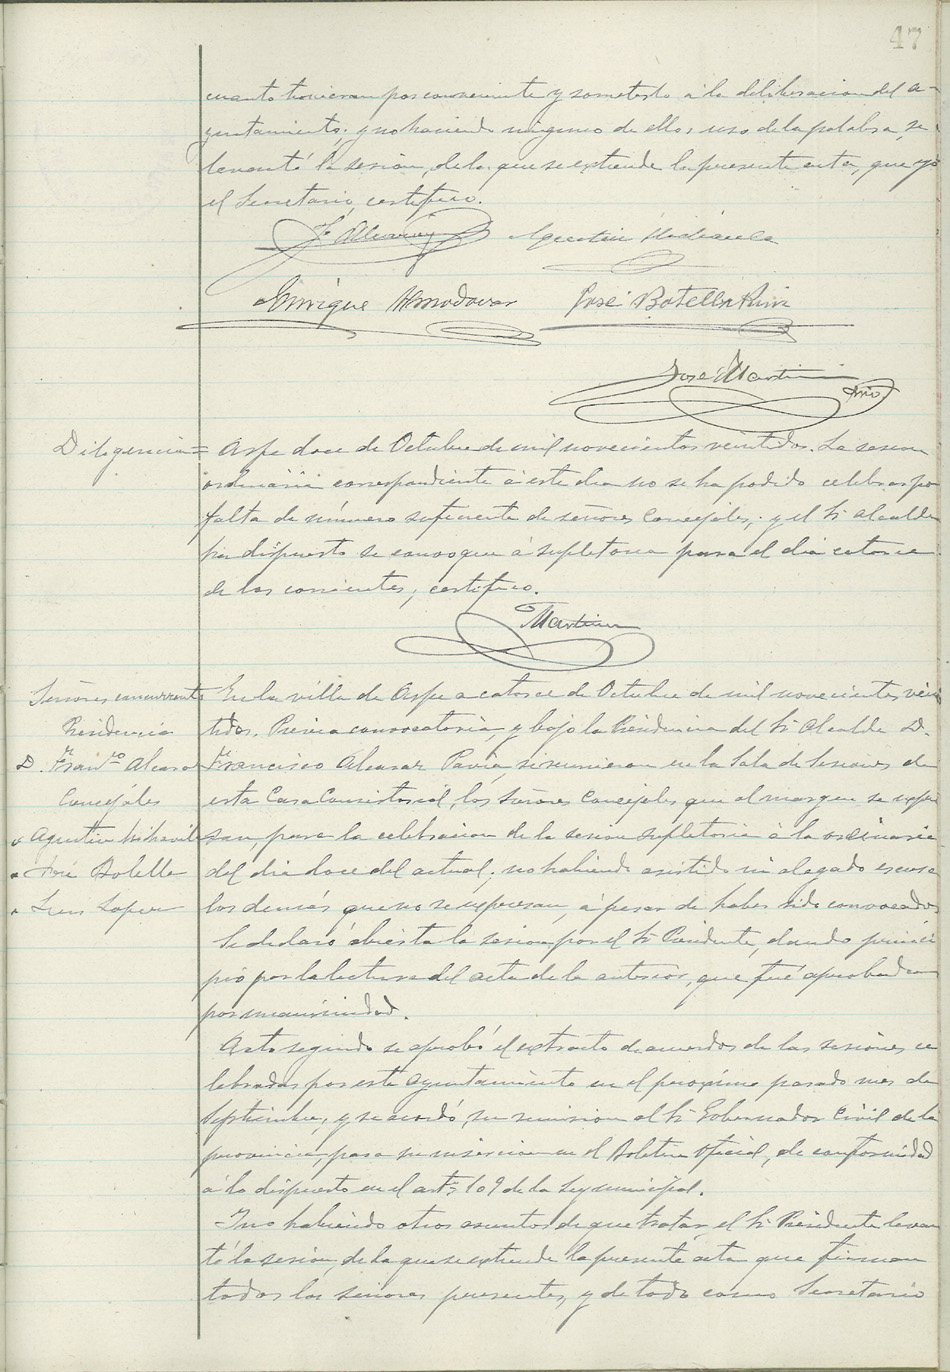 47
cuanto tuvieran por conveniente y someterlo á la deliberacion del a-
yuntamiento; y no haciendo ninguno de ellos uso de la palabra, se
levantó la sesion, de la que se extiende la presente acta, que yo
el Secretario, certifico.
Agustin Mira
Enrique Almodovar José Botella Ruiz
José Martin
Srio
Diligencia = Aspe doce de Octubre de mil novecientos veintidos. La sesion
ordinaria correspondiente á este dia no se ha podido celebrar por
falta de número suficiente de señores Concejales; y el Sr. Alcalde
ha dispuesto se convoque á supletoria para el dia catorce
de los corrientes, certifico.
Martin
Señores concurrentes
Presidencia
D. Franco. Alcaraz
Concejales
" Agustin
" José Botella
" Luis Lopez
En la villa de Aspe a catorce de Octubre de mil novecientos vein
tidos. Previa convocatoria y bajo la Presidencia del Sr. Alcalde D.
Francisco Alcaraz Pavía, se reunieron en la Sala de Sesiones de
esta Casa Consistorial, los Señores Concejales que al margen se expre
san, para la celebracion de la sesion supletoria á la ordinaria
del dia doce del actual; no habiendo asistido ni alegado escusa
los demás que no se expresan, á pesar de haber sido convocados
Se declaró abierta la sesion por el Sr. Presidente, dando princi
pio por la lectura del acta de la anterior, que fué aprobada
por unanimidad.
Acto seguido se aprobó el extracto de acuerdos de las sesiones ce
lebradas por este Ayuntamiento en el proximo pasado mes de
Septiembre, y se acordó, su remision al Sr. Gobernador Civil de la
provincia, para su insercion en el Boletin Oficial, de conformidad
á lo dispuesto en el artº 109 de la Ley municipal.
Y no habiendo otros asuntos de que tratar, el Sr. Presidente levan
tó la sesion, de la que se extiende la presente acta que firman
todos los señores presentes, y de todo como Secretario